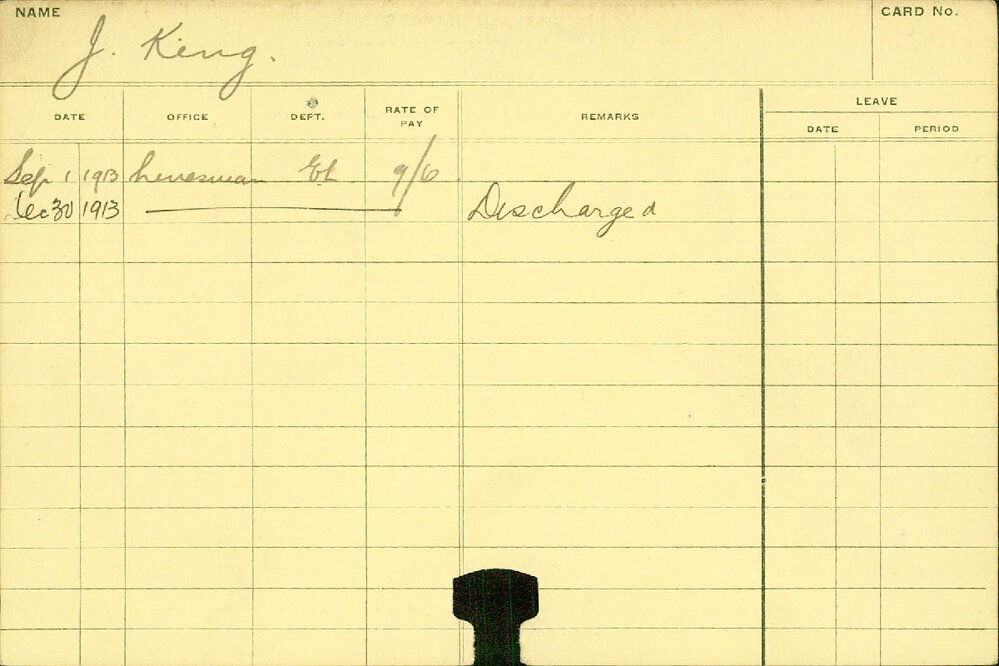 NAME
J. King.
CARD No.
DATE OFFICE DEPT. RATE OF PAY REMARKS LEAVE
DATE PERIOD
Sep 1 1913 Linesman El 9/6
Dec 30 1913 Discharged